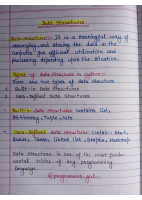 Data Structures
Data structure :- It is a meaningful way of
arranging and storing the data in the
computer for efficient utilization and
processing depending upon the situation.
Types of data structure in python :-
There are two types of Data Structure
Built-in Data Structures
User-Defined Data Structures
Built-in data structures contains List,
Dictionary, Tuple & Sets
User-Defined data structures Contain - Stack,
Queues, Trees, Linked List, Graphs, Hashmap
Data Structure is one of the most funda-
mental topics of any programming
language.